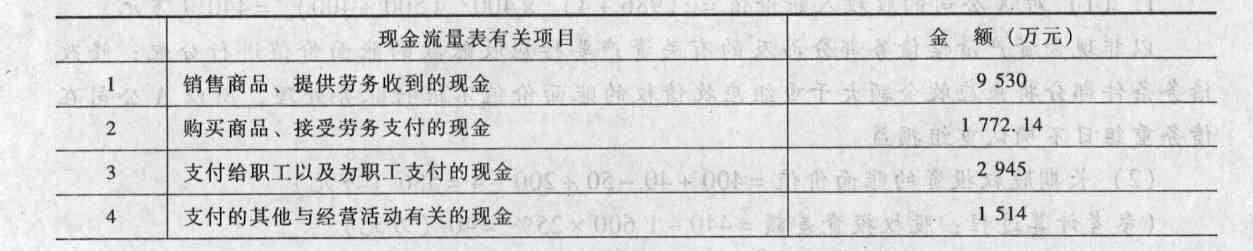 现金流量表有关项目 金 额（万元）
1 销售商品、提供劳务收到的现金 9 530
2 购买商品、接受劳务支付的现金 1 772.14
3 支付给职工以及为职工支付的现金 2 945
4 支付的其他与经营活动有关的现金 1 514